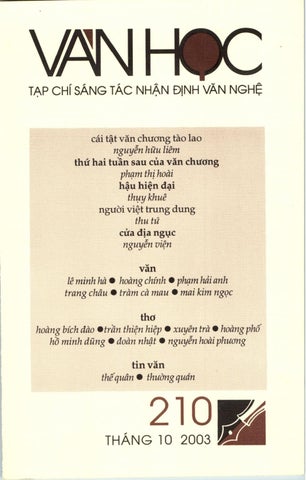 VĂN HỌC
TẠP CHÍ SÁNG TÁC NHẬN ĐỊNH VĂN NGHỆ
cái tật văn chương tào lao
nguyễn hữu liêm
thứ hai tuần sau của văn chương
phạm thị hoài
hậu hiện đại
thụy khuê
người việt trung dung
thu tứ
cửa địa ngục
nguyễn viện
văn
lê minh hà ● hoàng chính ● phạm hải anh
trang châu ● trầm cà mau ● mai kim ngọc
thơ
hoàng bích đào ● trần thiện hiệp ● xuyên trà ● hoàng phố
hồ minh dũng ● đoàn nhật ● nguyễn hoài phương
tin văn
thế quân ● thường quán
210
THÁNG 10 2003